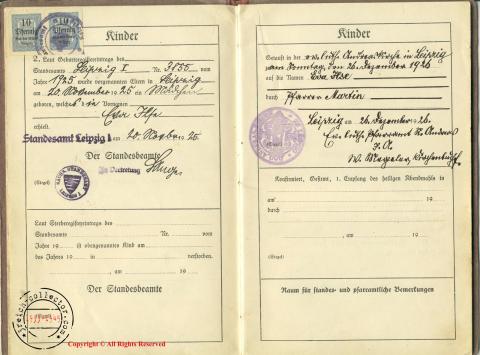 10
Pfennig
Kinder
2. Laut Geburtsregistereintrags des
Standesamts Leipzig I Nr. 3855 vom
Jahre 1925 wurde vorgenannten Eltern in Leipzig
am 20. November 1925 ein Mädchen
geboren, welches die Vornamen
Eva Ilse
erhielt.
Standesamt Leipzig I am 20. Novber 25
Der Standesbeamte
(Siegel)
In Vertretung
Laut Sterberegistereintrags des
Standesamts Nr. vom
Jahre 19 ist obengenanntes Kind am
des Jahres 19 in verstorben.
, am 19
Der Standesbeamte
Kinder
Getauft in der ev. luth. Andreaskirche in Leipzig
am Sonntag, den 26. Dezember 1926
auf die Namen Eva Ilse
durch Pfarrer Martin
Leipzig am 26. Dezember 1926.
Ev. luth. Pfarramt St. Andreas
J. A.
Konfirmiert, Gefirmt, 1. Empfang des heiligen Abendmahls in
am 19
durch
, am 19
(Siegel)
Raum für standes- und pfarramtliche Bemerkungen
3reich-collector.com
Copyright © All Rights Reserved